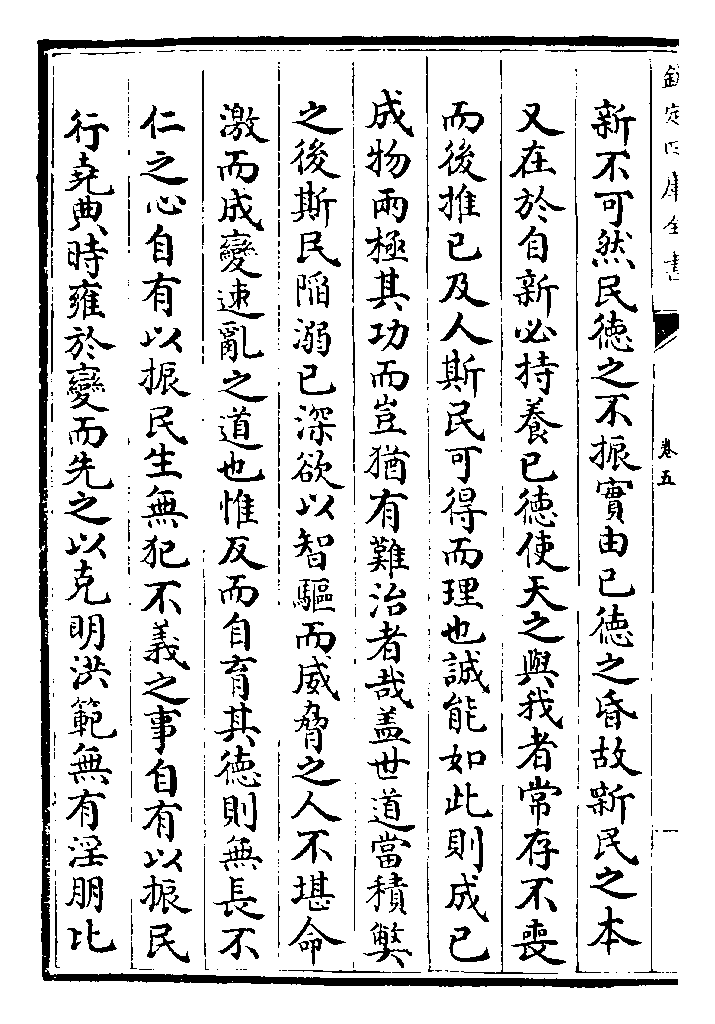 欽定四庫全書
卷五
新不可然民德之不振實由已德之昏故新民之本
又在於自新必持養已德使天之與我者常存不喪
而後推已及人斯民可得而理也誠能如此則成已
成物兩極其功而豈猶有難治者哉盖世道當積弊
之後斯民陷溺已深欲以智驅而威脅之人不堪命
激而成變速亂之道也惟反而自育其德則無長不
仁之心自有以振民生無犯不義之事自有以振民
行堯典時雍於變而先之以克明洪範無有淫朋比